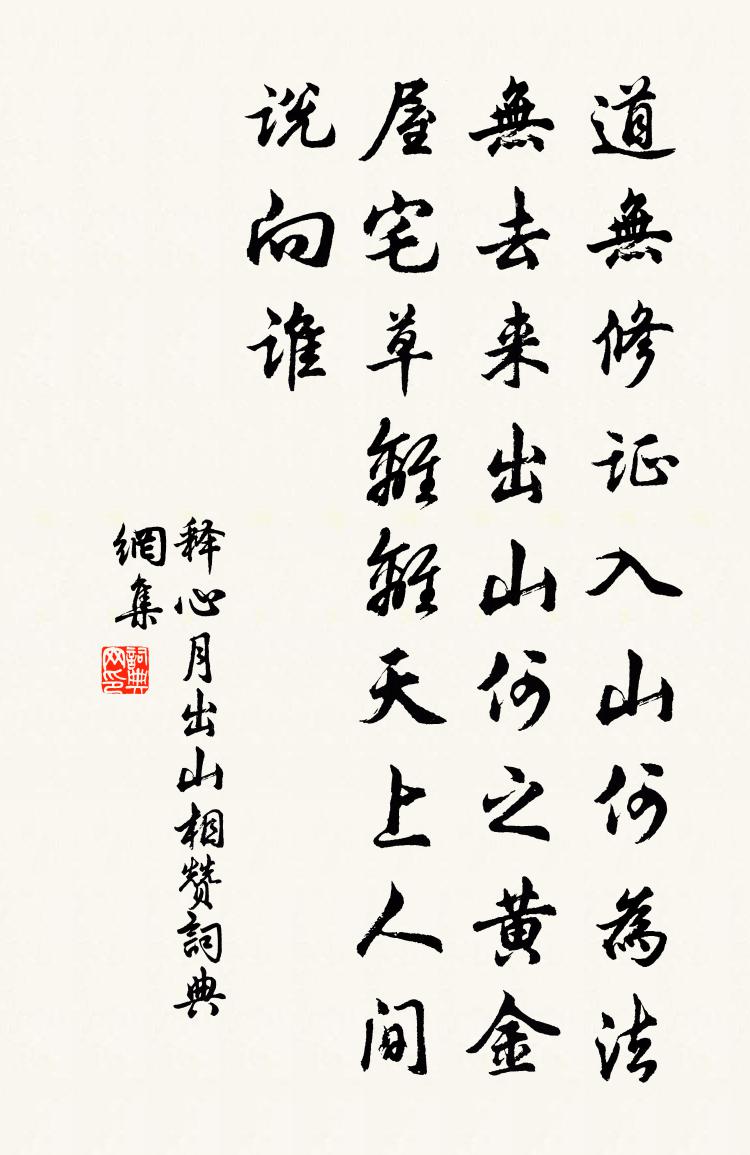 道無修证入山何為法
無去来出山何之黄金
屋宅草離離天上人间
说向谁
释心月出山相赞詞典
網集
詞典
网印